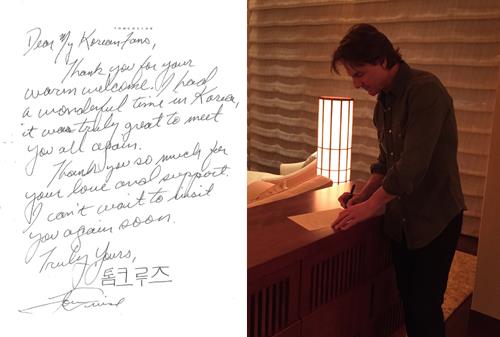 TOM CRUISE
Dear My Korean Fans,
Thank you for your
warm welcome. I had
a wonderful time in Korea,
it was truly great to meet
you all again.
Thank you so much for
your love and support.
I can't wait to visit
you again soon.
Truly Yours,
톰크루즈
Tom Cruise